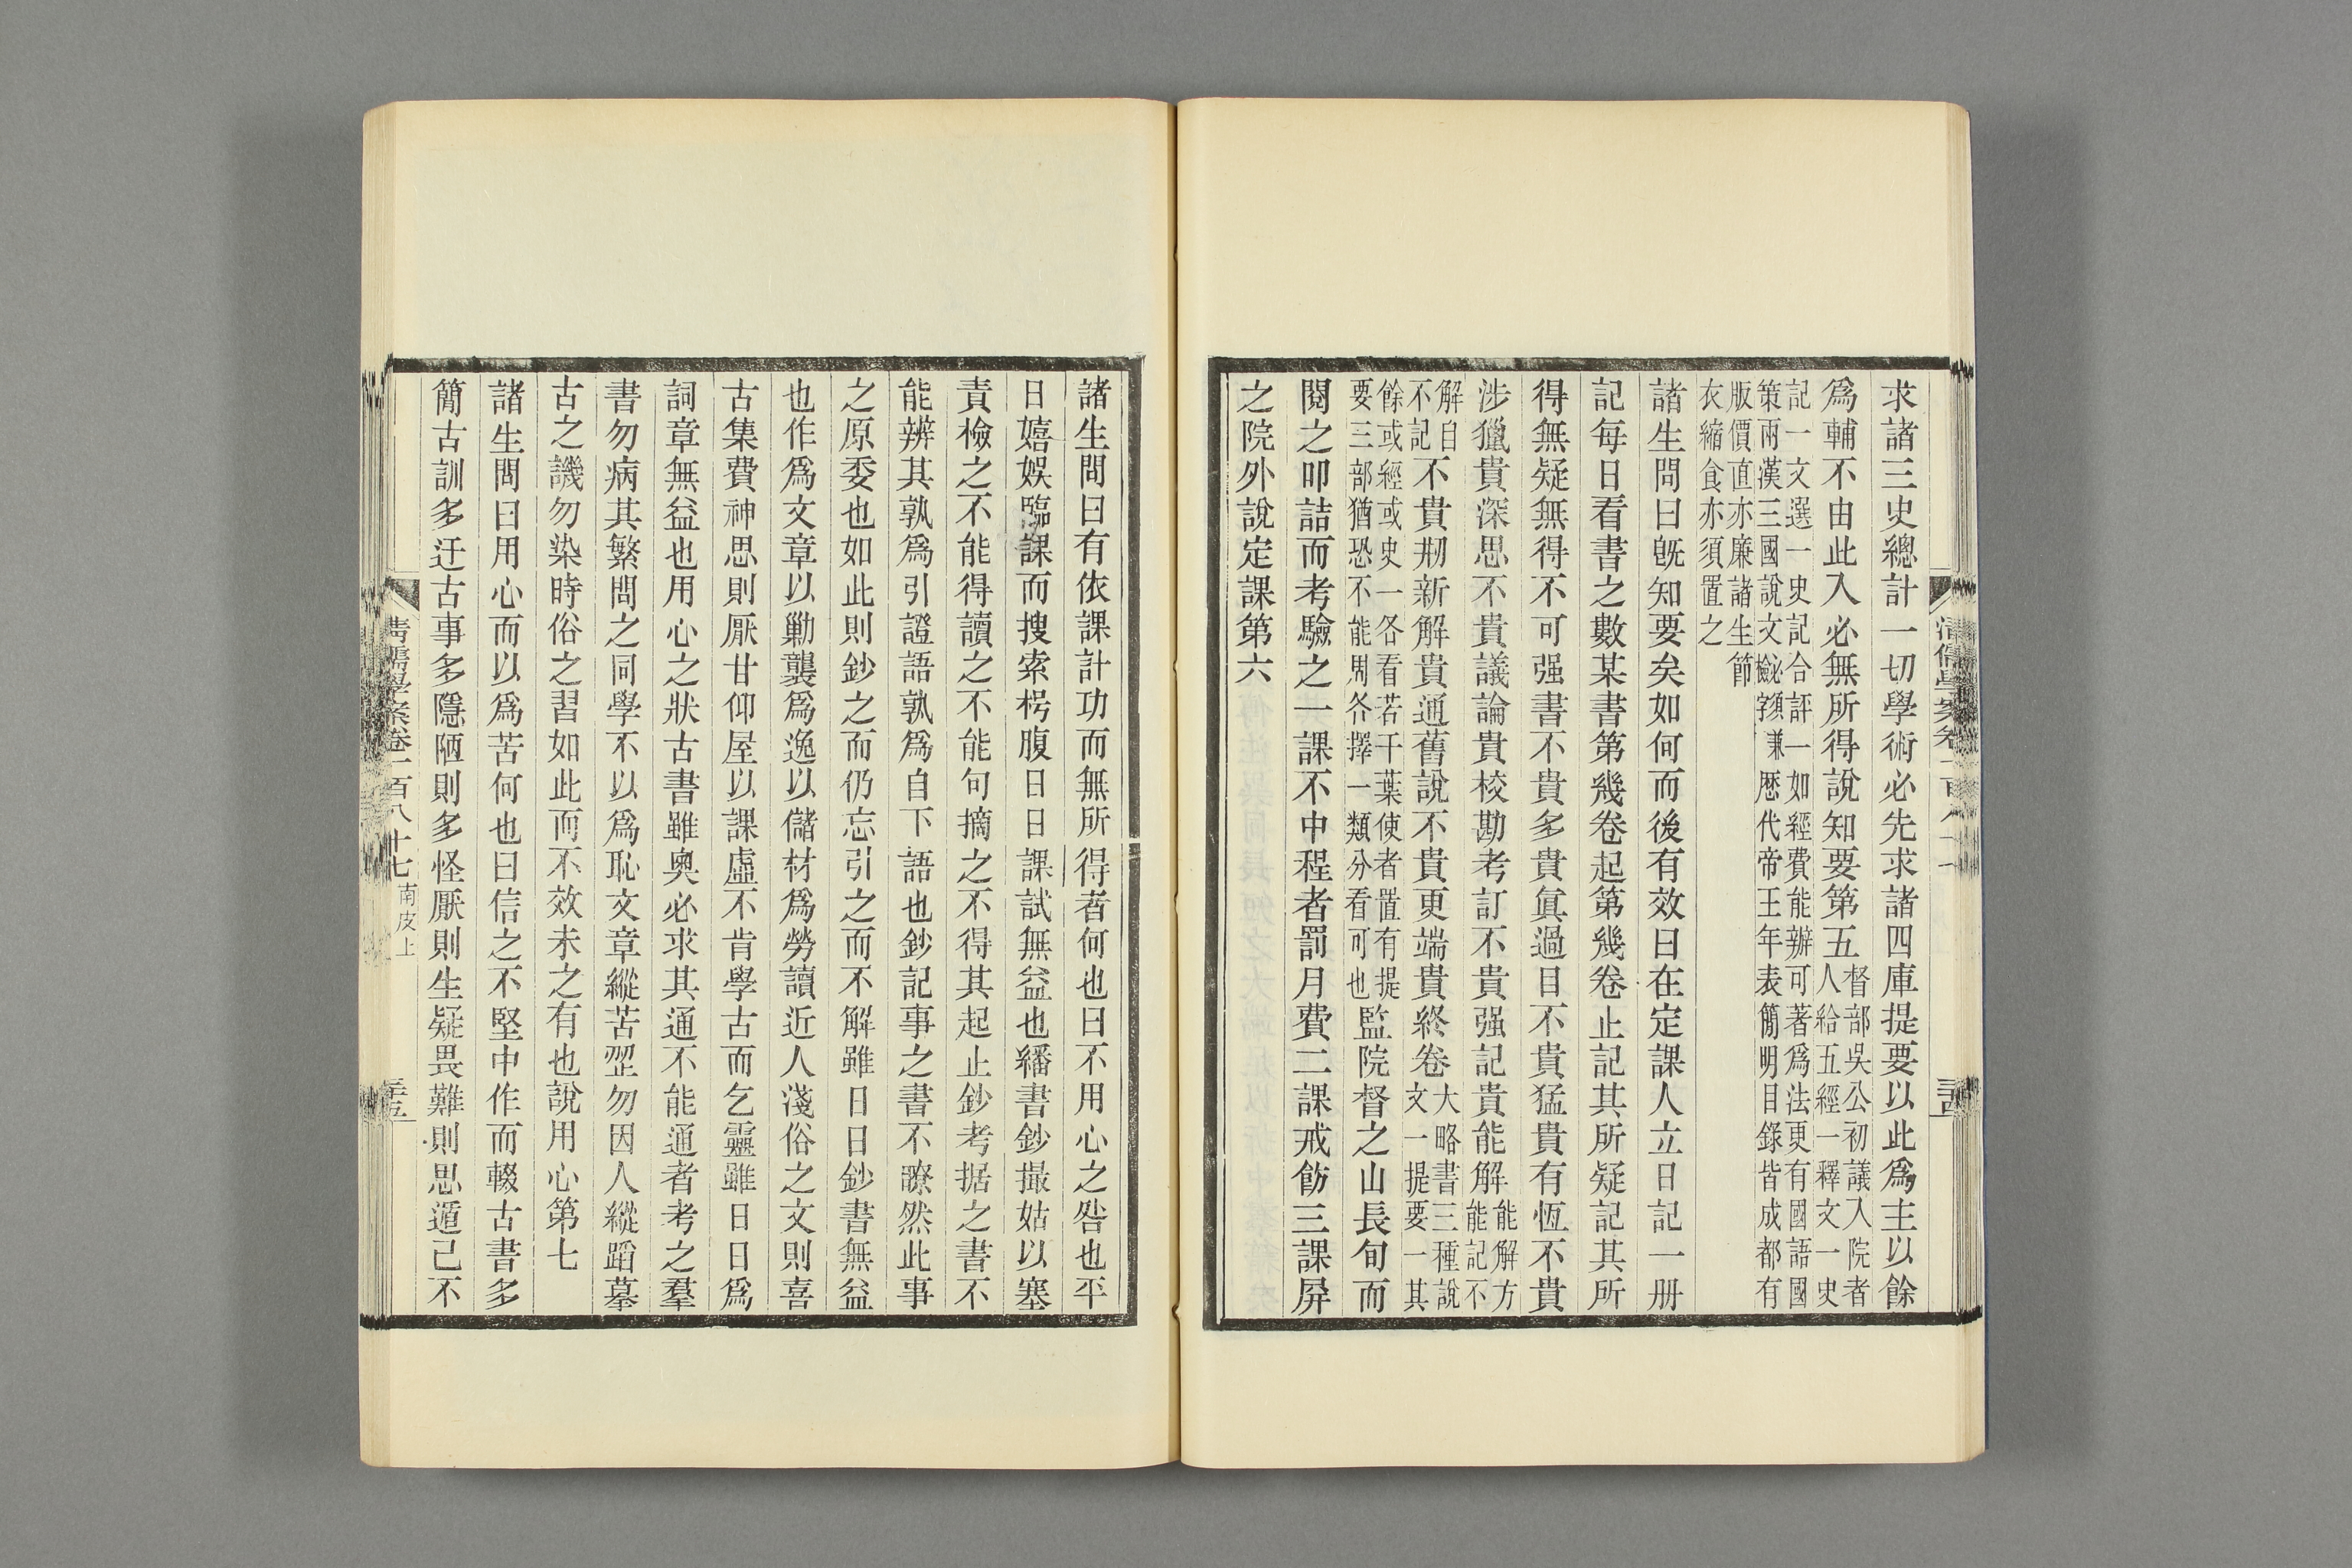 求諸三史總計一切學術必先求諸四庫提要以此爲主以餘
爲輔不由此入必無所得說知要第五督部吳公初議入院者人給五經一釋文一史
記一文選一史記合評一如經費能辦可著爲法更有國語國
策兩漢三國說文歷代帝王年表簡明目錄皆成都有
版價直亦廉諸生節
衣縮食亦須置之
諸生問曰旣知要矣如何而後有效曰在定課人立日記一册
記每日看書之數某書第幾卷起第幾卷止記其所疑記其所
得無疑無得不可强書不貴多貴眞過目不貴猛貴有恆不貴
涉獵貴深思不貴議論貴校勘考訂不貴强記貴能解能解方能記不
解自不記不貴剏新解貴通舊說不貴更端貴終卷大略書三種說文一提要一其
餘或經或史一各看若干葉使者置有提要三部猶恐不能周各擇一類分看可也監院督之山長旬而
閱之叩詰而考驗之一課不中程者罰月費二課戒飭三課屏
之院外說定課第六
清儒學案卷一百八十七
諸生問曰有依課計功而無所得者何也曰不用心之咎也平
日嬉娛臨課而搜索枵腹日日課試無益也繙書鈔撮姑以塞
責檢之不能得讀之不能句摘之不得其起止鈔考据之書不
能辨其孰爲引證語孰爲自下語也鈔記事之書不瞭然此事
之原委也如此則鈔之而仍忘引之而不解雖日日鈔書無益
也作爲文章以勦襲爲逸以儲材爲勞讀近人淺俗之文則喜
古集費神思則厭甘仰屋以課虛不肯學古而乞靈雖日日爲
詞章無益也用心之狀古書雖奧必求其通不能通者考之羣
書勿病其繁問之同學不以爲恥文章縱苦澀勿因人縱蹈摹
古之譏勿染時俗之習如此而不效未之有也說用心第七
諸生問曰用心而以爲苦何也曰信之不堅中作而輟古書多
簡古訓多迂古事多隱陋則多怪厭則生疑畏難則思遁己不
清儒學案卷一百八十七 南皮上 三五